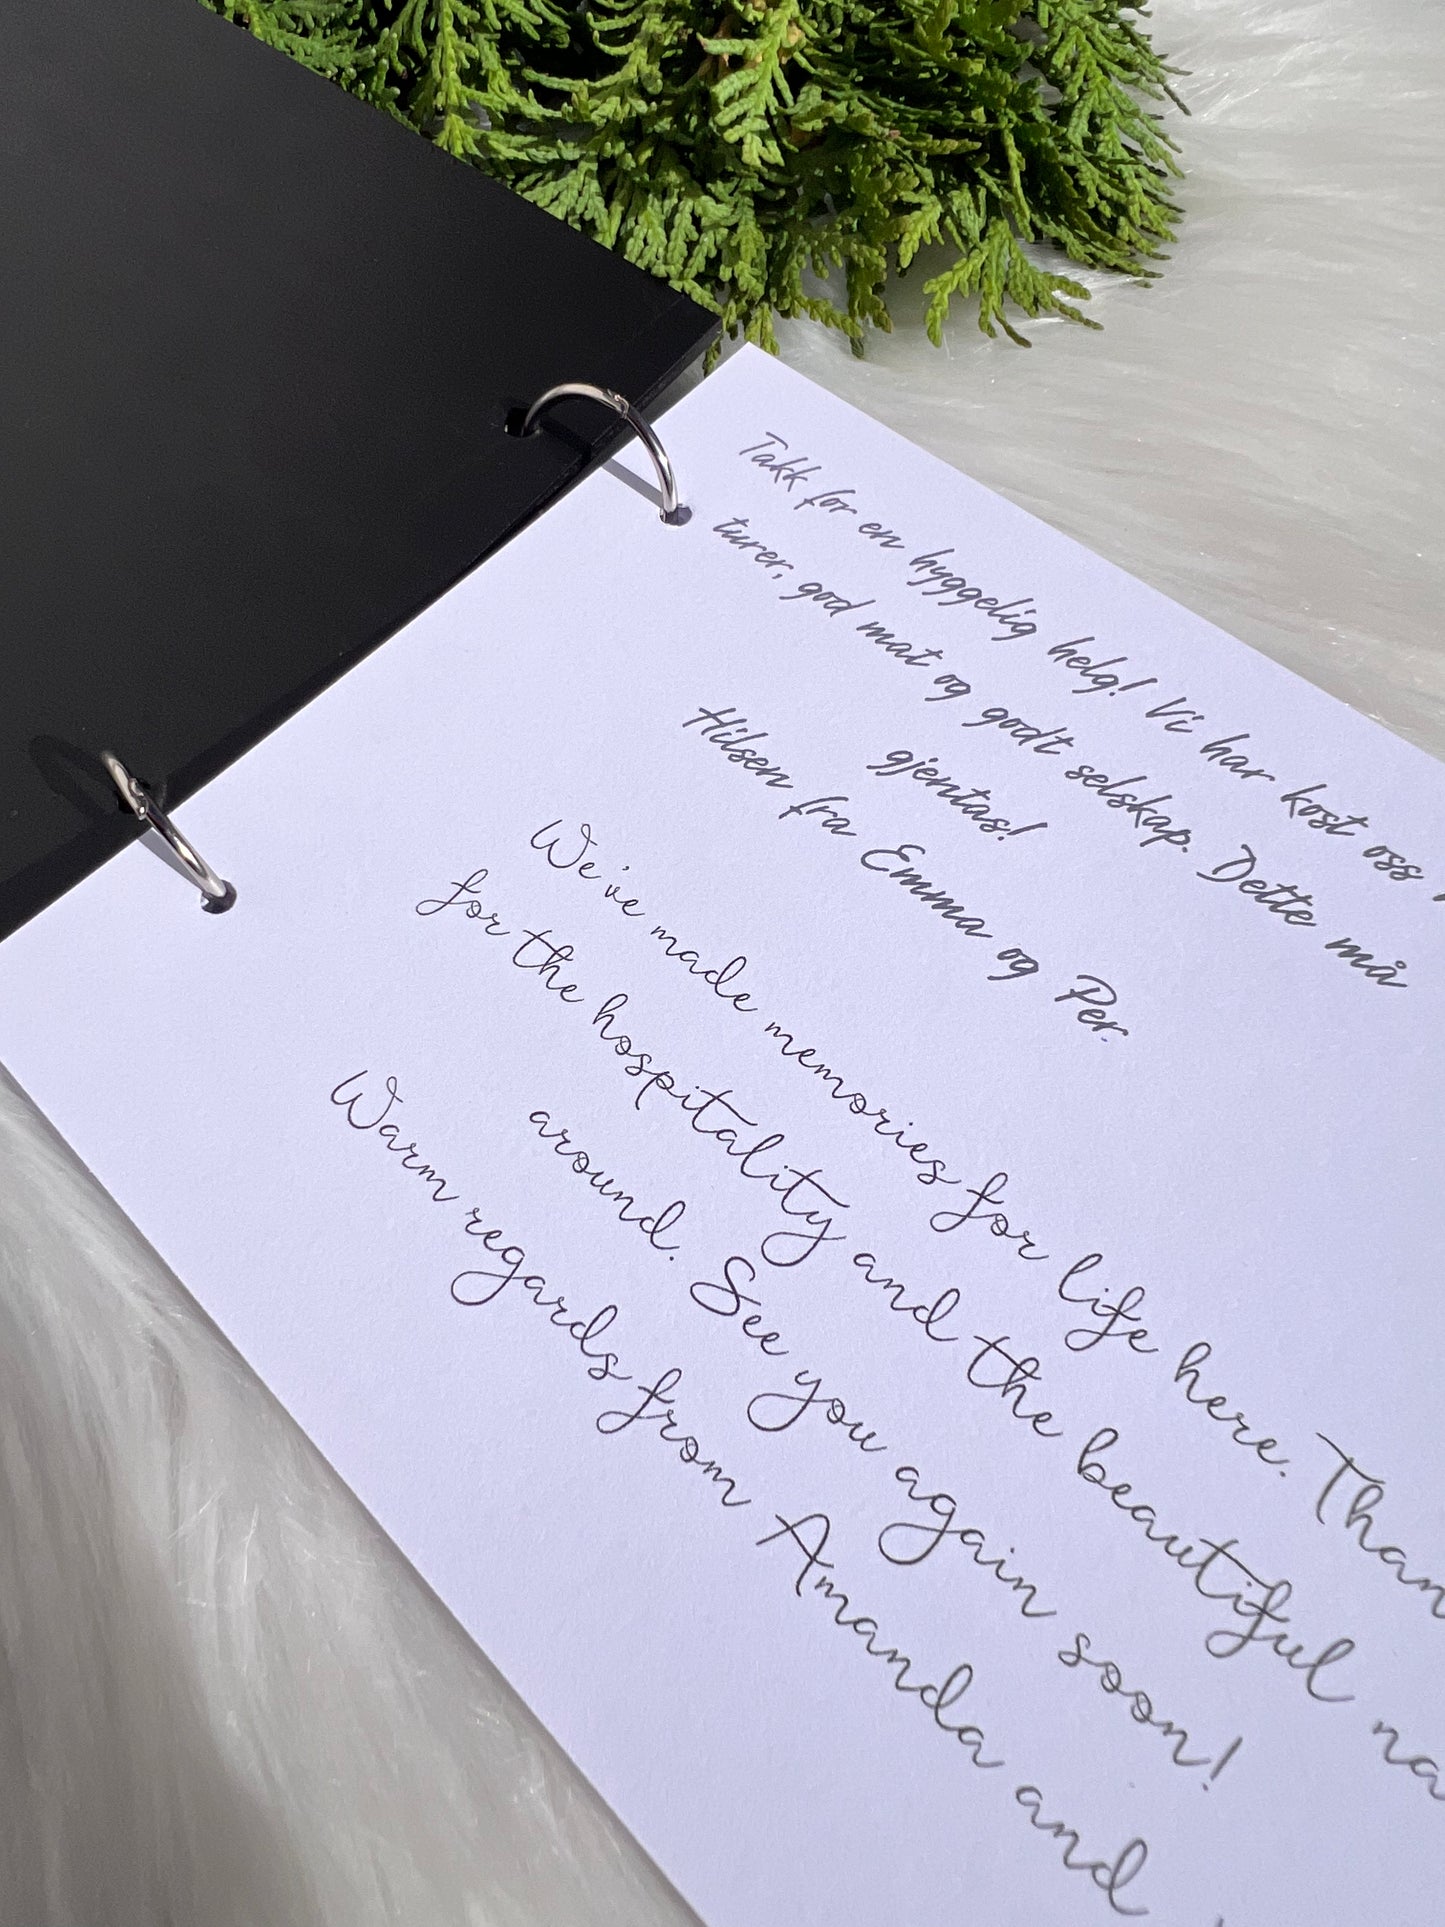 Takk for en hyggelig helg! Vi har kost oss
turer, god mat og godt selskap. Dette må
gjentas!
Hilsen fra Emma og Per.
We've made memories for life here. Than
for the hospitality and the beautiful na
around. See you again soon!
Warm regards from Amanda and